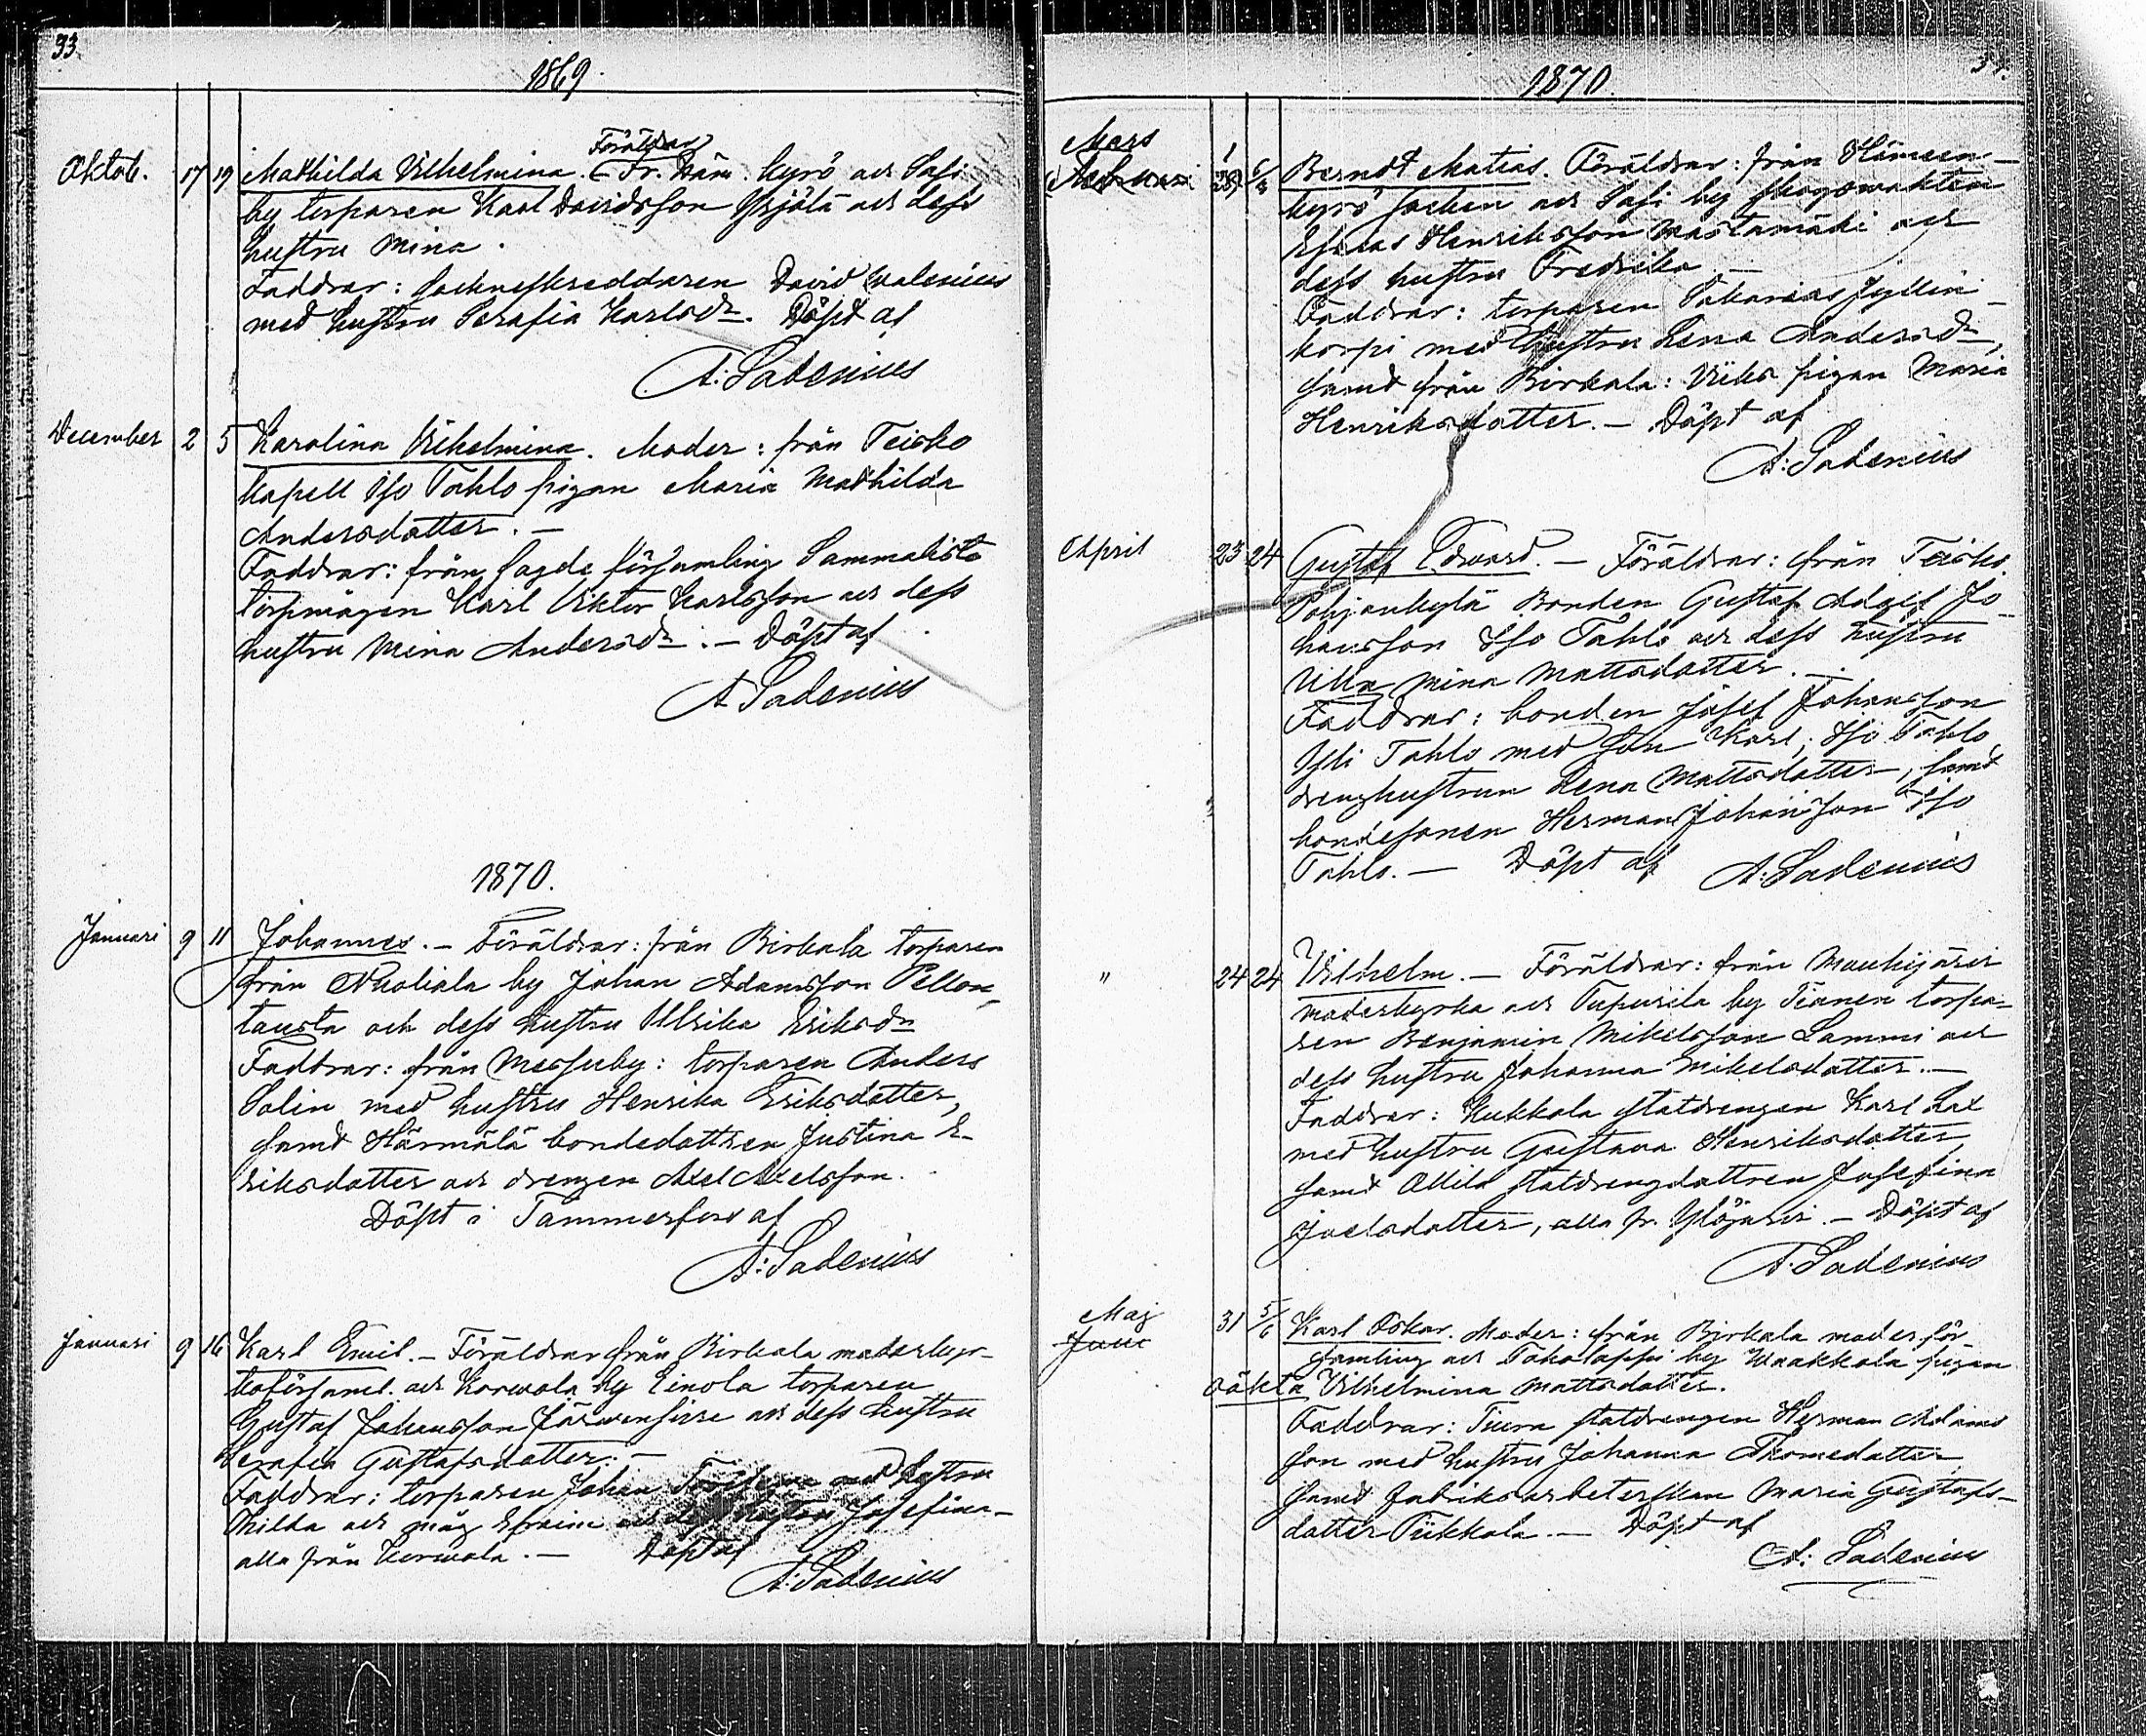 33
1869.
Föräldrar
Oktob. 17 19 Mathilda Vilhelmina. Fr. Däm. kyrö och Sasi
by torparen Karl Davidsson Yrjölä och dess
hustru Mina.
Faddrar: sockneskreddaren David Walenius
med hustru Serafia Karlsdr. Döpt af
A: Sadenius
December 2 5 Karolina Vilhelmina. Moder: från Teisko
kapell Iso Pohlo pigan Maria Mathilda
Andersdotter. —
Faddrar: från sagde församling Sammalisto
torpmågen Karl Viktor Karlsson och dess
hustru Mina Andersdr. — Döpt af
A Sadenius
1870.
Januari 9 11 Johannes. — Föräldrar: från Birkala torparen
från Nokiala by Johan Adamsson Pellon-
tausta och dess hustru Ulrika Eriksdr
Faddrar: från Messuby: torparen Anders
Salin med hustru Henrika Eriksdotter,
samt Härmälä bondedottren Justina E-
riksdotter och drengen Axel Axelsson.
Döpt i Tammerfors af
A: Sadenius
Januari 9 16 Karl Emil. — Föräldrar från Birkala moderkyr-
koförsaml. och Korwola by Einola torparen
Gustaf Johansson Järwensivu och dess hustru
Serafia Gustafsdotter. —
Faddrar: torparen Johan med hustru
Thilda och måg Efraim och dess hustru Josefina —
alla från Korwola. — Döpt af
A: Sadenius
34.
1870.
Mars 1 6/3
Februari 28 Berndt Matias. Föräldrar: från Hämeen-
kyrö socken och Sasi by skogswakten
Henriksson Mastamäki och
dess hustru Fredrika —
Faddrar: torparen Sakarias Jyllin-
korpi med hustru Lena Andersdr,
samt från Birkala: Viiks pigan Maria
Henriksdotter. — Döpt af
A: Sadenius
April 23 24 Gustaf Edvard. — Föräldrar: från Teisko
Pohjankylä Bonden Gustaf Adolf Jo-
hansson Iso Pohlo och dess hustru
Ulla Mina Mattsdotter. —
Faddrar: bonden Josef Johansson
Yli Pohlo med son Karl; Iso Pohlo
drenghustrun Lena Mattsdotter, samt
bondesonen Herman Johansson Iso
Pohlo. — Döpt af A: Sadenius
" 24 24 Vilhelm. — Föräldrar: från Mouhijärvi
moderkyrka och Tupurila by Tianen torpa-
ren Benjamin Mikelsson Lammi och
dess hustru Johanna Mikelsdotter. —
Faddrar: Kukkola statdrengen Karl Lax
med hustru Gustava Henriksdotter
samt Ollila statdrengdottren Josefina
Joelsdotter, alla fr. Ylöjärvi. — Döpt af
A. Sadenius
Maj 31 5/6 Karl Oskar. Moder: från Birkala moderför
Juni samling och Tokolappi by Waakkola pigan
oäkta Vilhelmina Mattsdotter.
Faddrar: Tiura statdrengen Herman Adams
son med hustru Johanna Thomedotter
samt fabriksarbeterskan Maria Gustafs-
dotter Tiikkola. — Döpt af
A: Sadenius